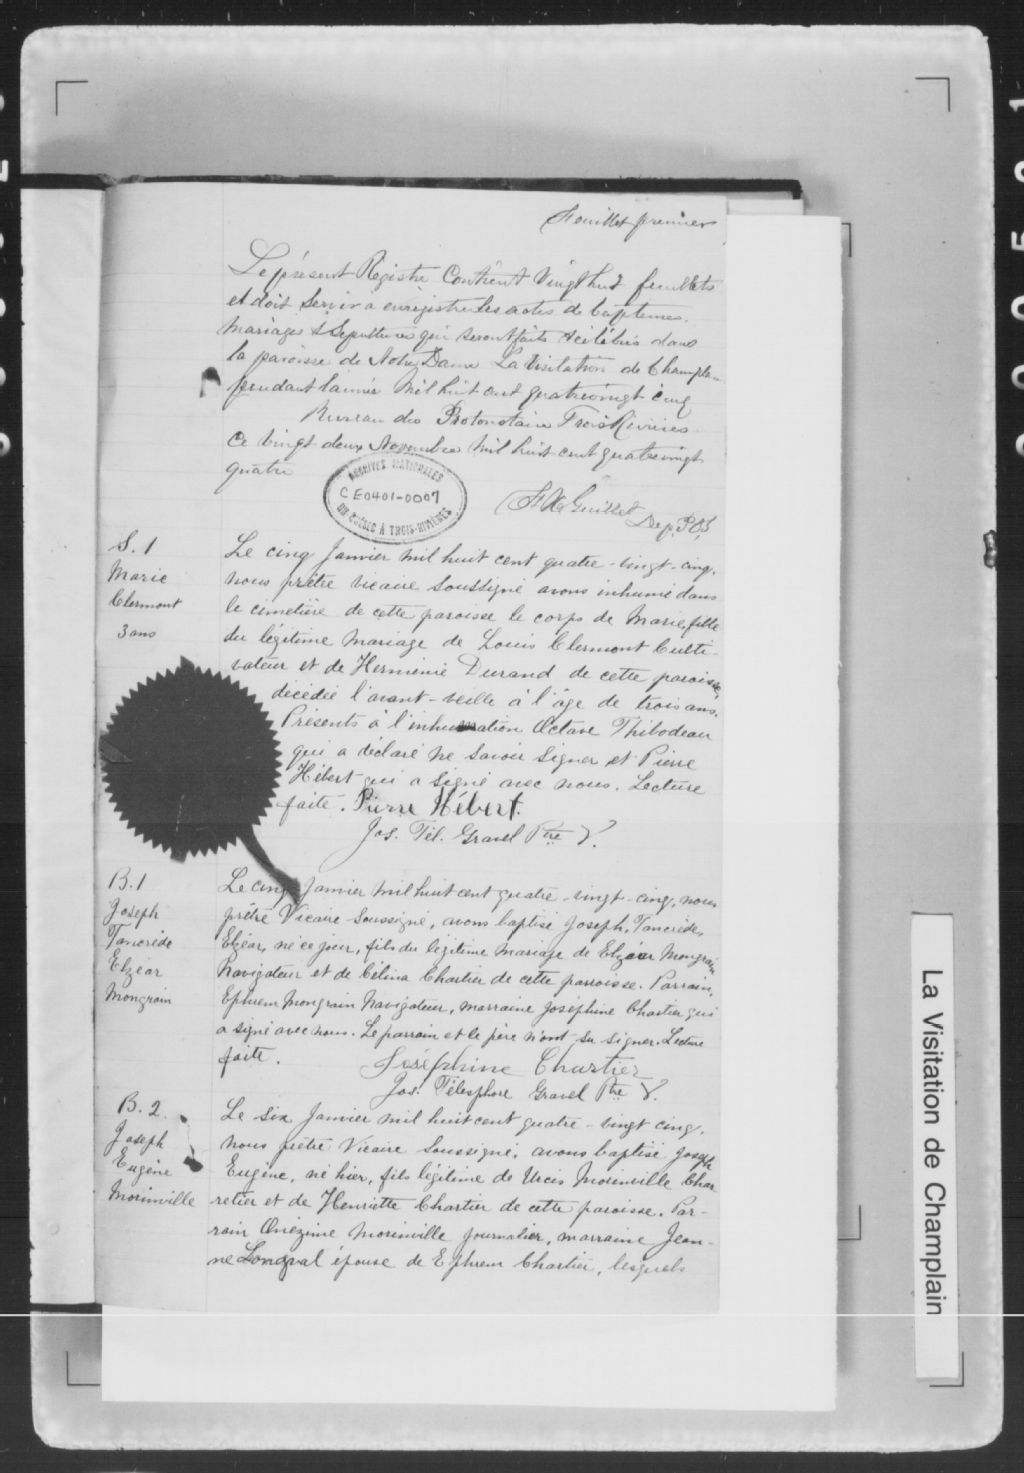 Feuillet premier
Le présent Registre Contient Vingt huit feuillets
et doit Servir a enregistrer les actes de baptemes
Mariages & Sepultures qui seront faits & célébrés dans
la paroisse de Notre Dame La Visitation de Champlain
pendant l'année Mil huit cent quatrevingt cinq
Bureau du Protonotaire Trois Rivieres
Ce vingt deux Novembre Mil huit cent quatrevingt
quatre
ARCHIVES NATIONALES
CE0401-0007
DU QUÉBEC À TROIS-RIVIÈRES
Guillet Dep. P.C.S.
S. 1
Marie
Clermont
3 ans
Le cinq Janvier mil huit cent quatre-vingt-cinq,
nous prêtre vicaire soussigné avons inhumé dans
le cimetière de cette paroisse le corps de Marie fille
du légitime mariage de Louis Clermont Culti-
vateur et de Herminie Durand de cette paroisse,
décédée l'avant-veille à l'âge de trois ans.
Présents à l'inhumation Octave Thibodeau
qui a déclaré ne savoir signer et Pierre
Hébert qui a signé avec nous. Lecture
faite. Pierre Hébert.
Jos. Tél. Gravel Ptre V.
B. 1
Joseph
Tancrède
Elzéar
Mongrain
Le cinq Janvier mil huit cent quatre-vingt-cinq, nous
prêtre Vicaire soussigné, avons baptisé Joseph, Tancrède,
Elzéar, né ce jour, fils du légitime mariage de Elzéar Mongrain
Navigateur et de Célina Chartier de cette paroisse. Parrain,
Ephrem Mongrain Navigateur, marraine Joséphine Chartier qui
a signé avec nous. Le parrain et le père n'ont su signer. Lecture
faite. Joséphine Chartier
Jos. Télesphore Gravel Ptre V.
B. 2.
Joseph
Eugène
Morinville
Le six Janvier mil huit cent quatre-vingt cinq,
nous prêtre Vicaire soussigné, avons baptisé Joseph
Eugène, né hier, fils légitime de Urcis Morinville Char
retier et de Henriette Chartier de cette paroisse. Par-
rain Onézime Morinville journalier, marraine Jean-
ne Longval épouse de Ephrem Chartier, lesquels
La Visitation de Champlain